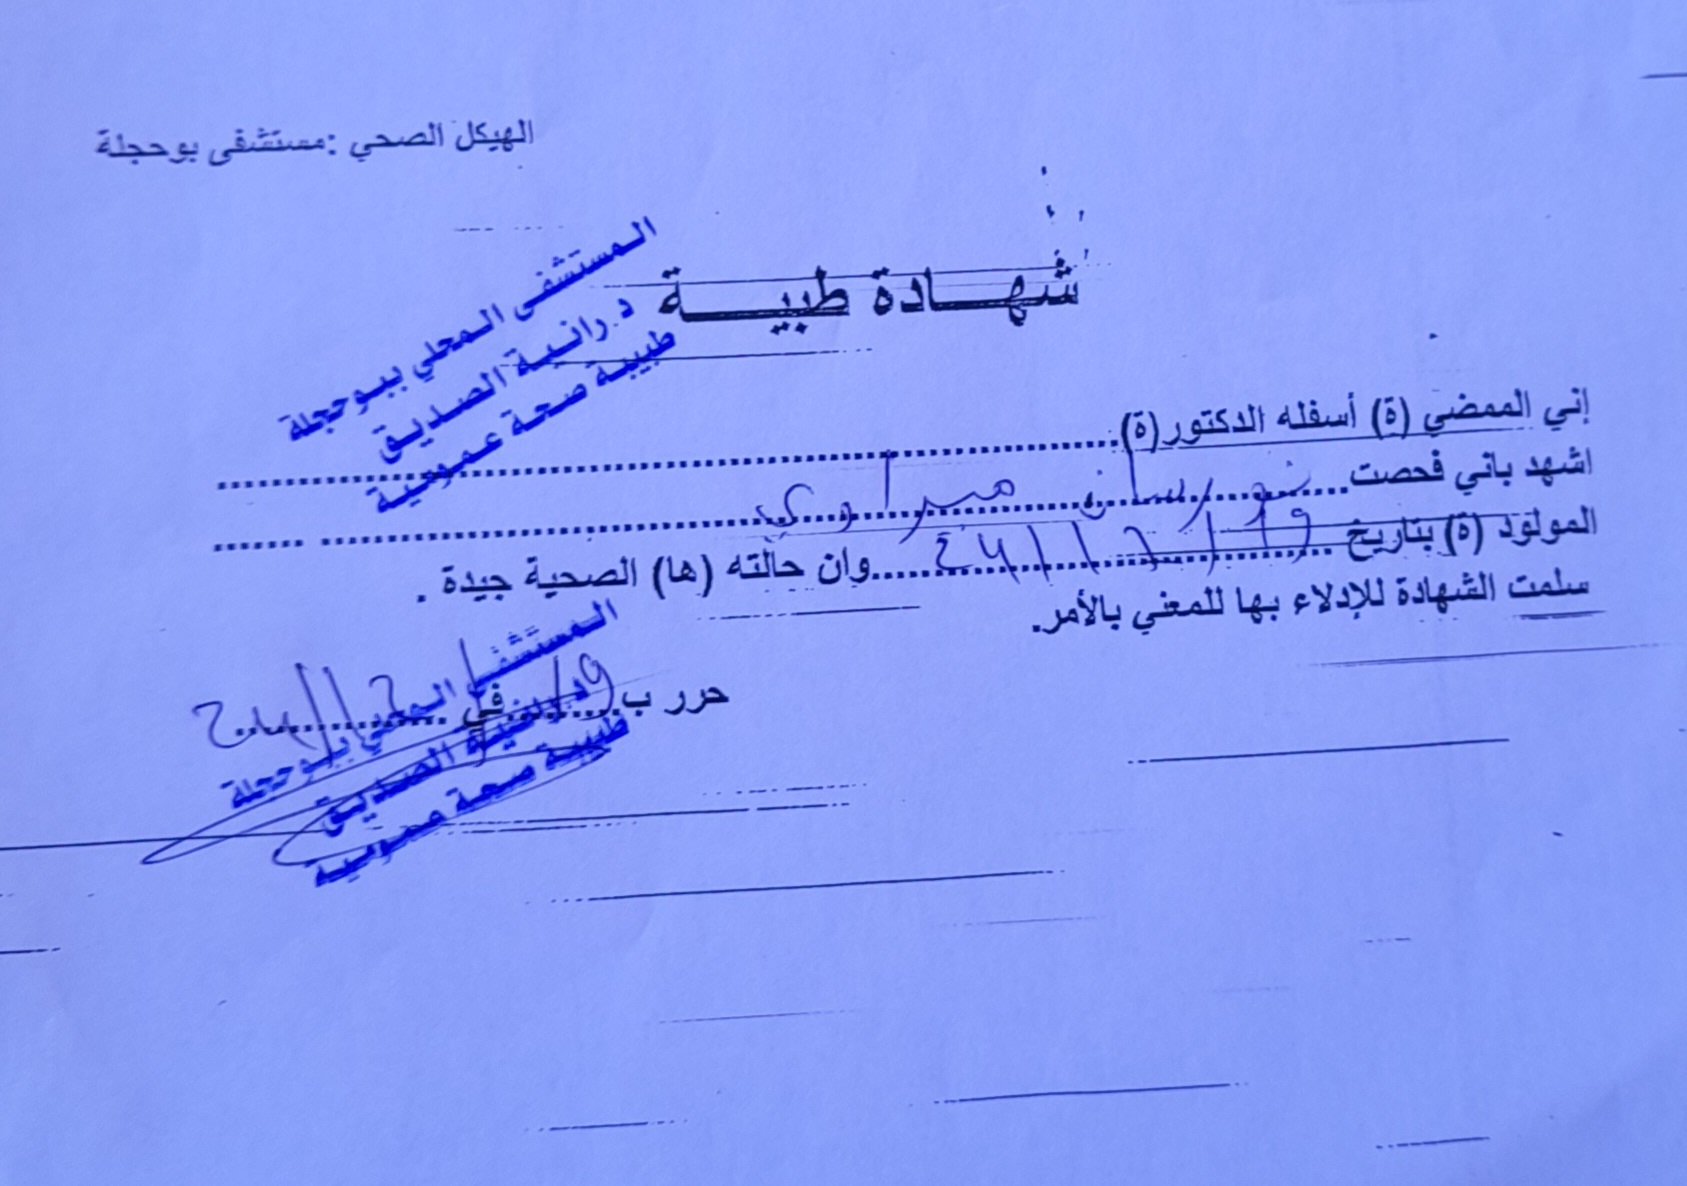 الهيكل الصحي :مستشفى بوحجلة
شهادة طبية
المستشفى المحلي ببوحجلة
د. رانية الصديق
طبيبة صحة عمومية
إني الممضي (ة) أسفله الدكتور(ة)
اشهد باني فحصت
المولود (ة) بتاريخ وان حالته (ها) الصحية جيدة .
سلمت الشهادة للإدلاء بها للمعني بالأمر.
حرر ب في
المستشفى المحلي ببوحجلة
د. رانية الصديق
طبيبة صحة عمومية